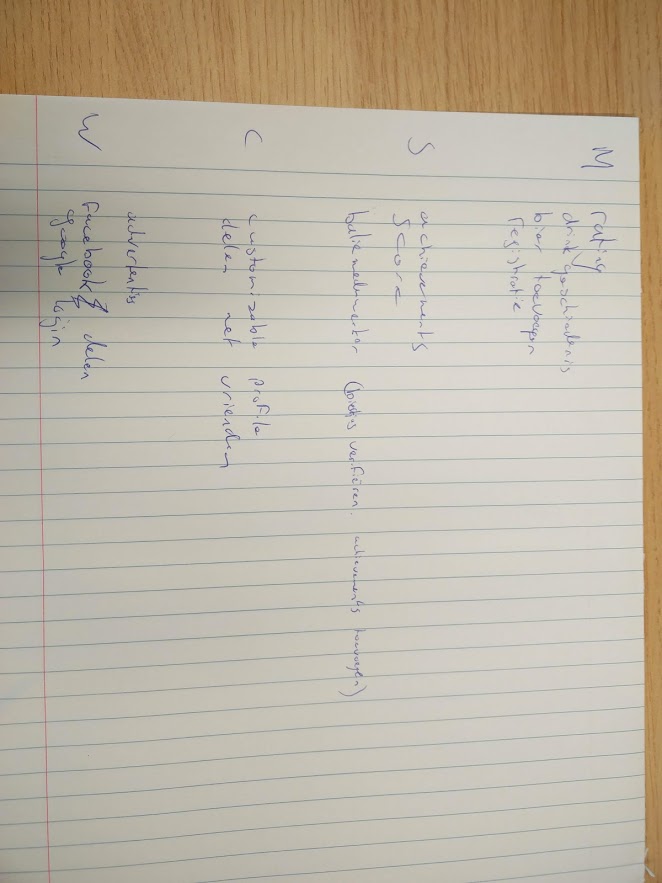 M
rating
drink geschiedenis
bier toevoegen
registratie
S
achievements
score
baliemedewerker (biertjes verifiëren. achievements toevoegen)
C
customizable profile
delen met vrienden
W
advertentis
facebook & delen
google login